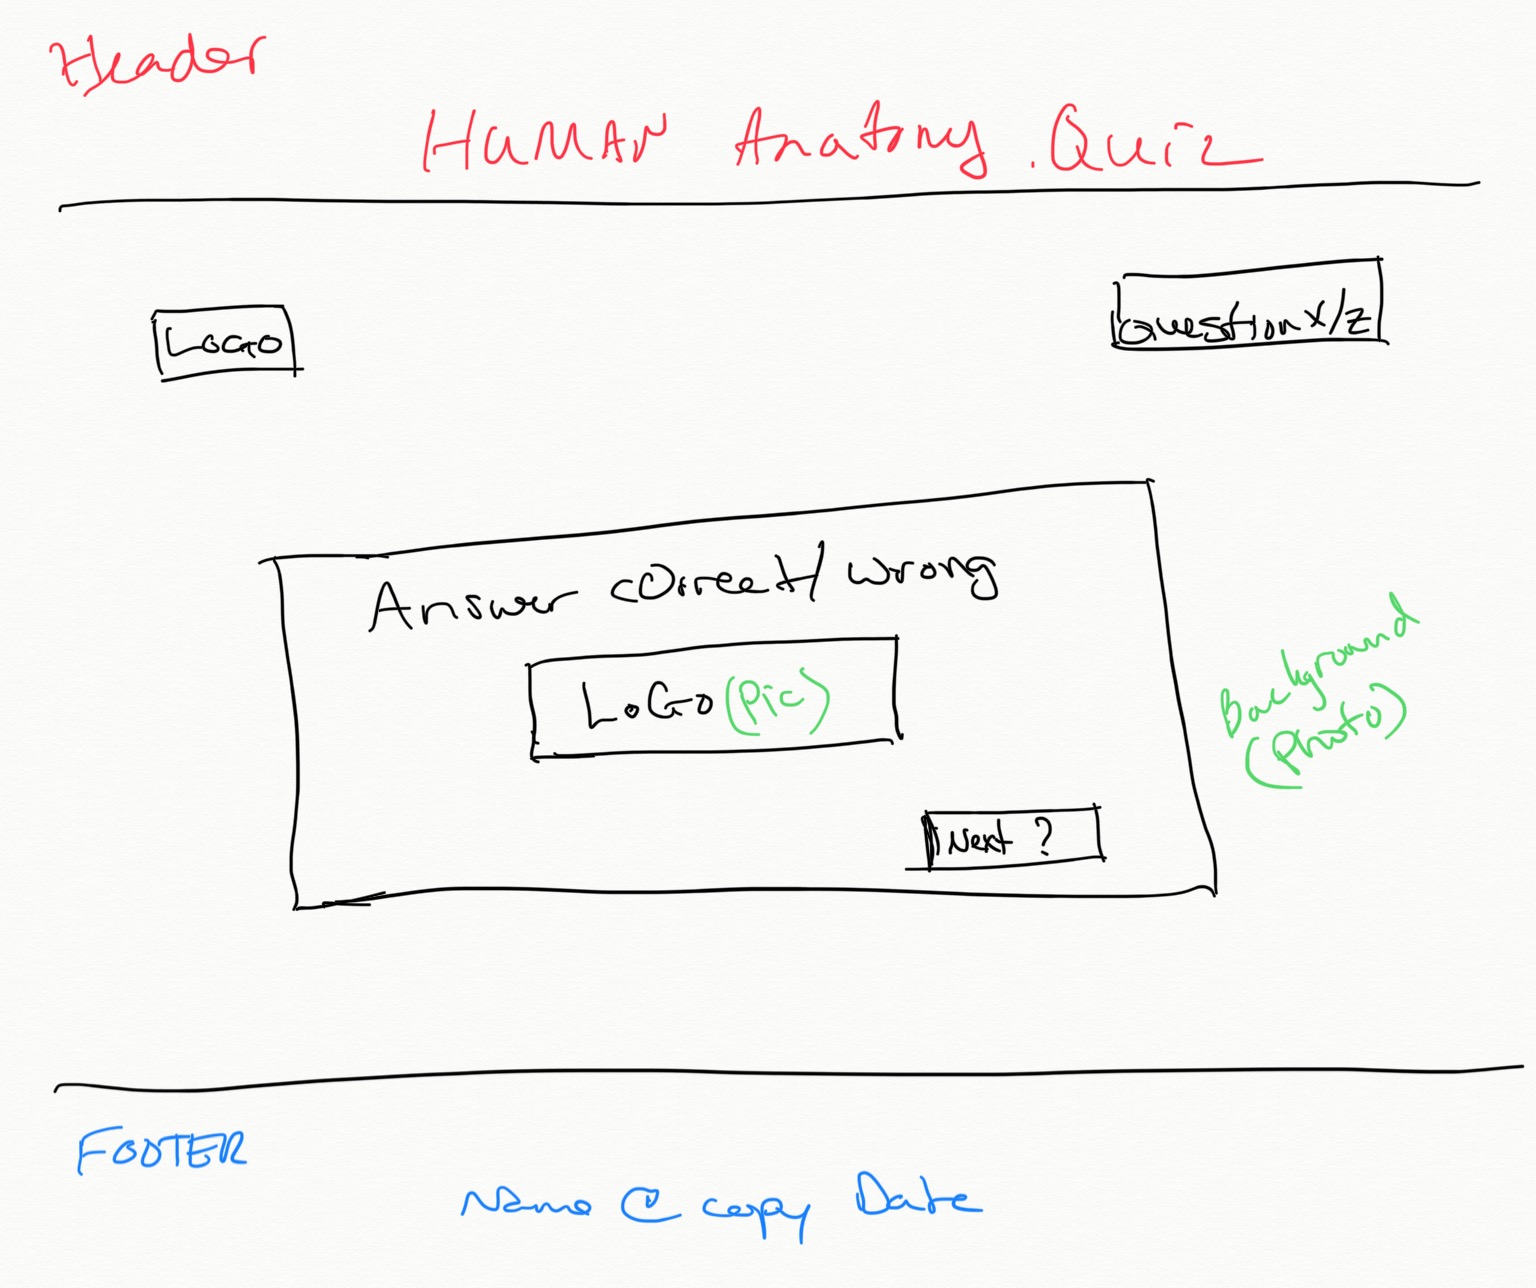 Header
HUMAN Anatomy Quiz
LOGO
Question x/z
Answer correct/wrong
LOGO (Pic)
Next ?
Background
(Photo)
FOOTER
Name © copy Date